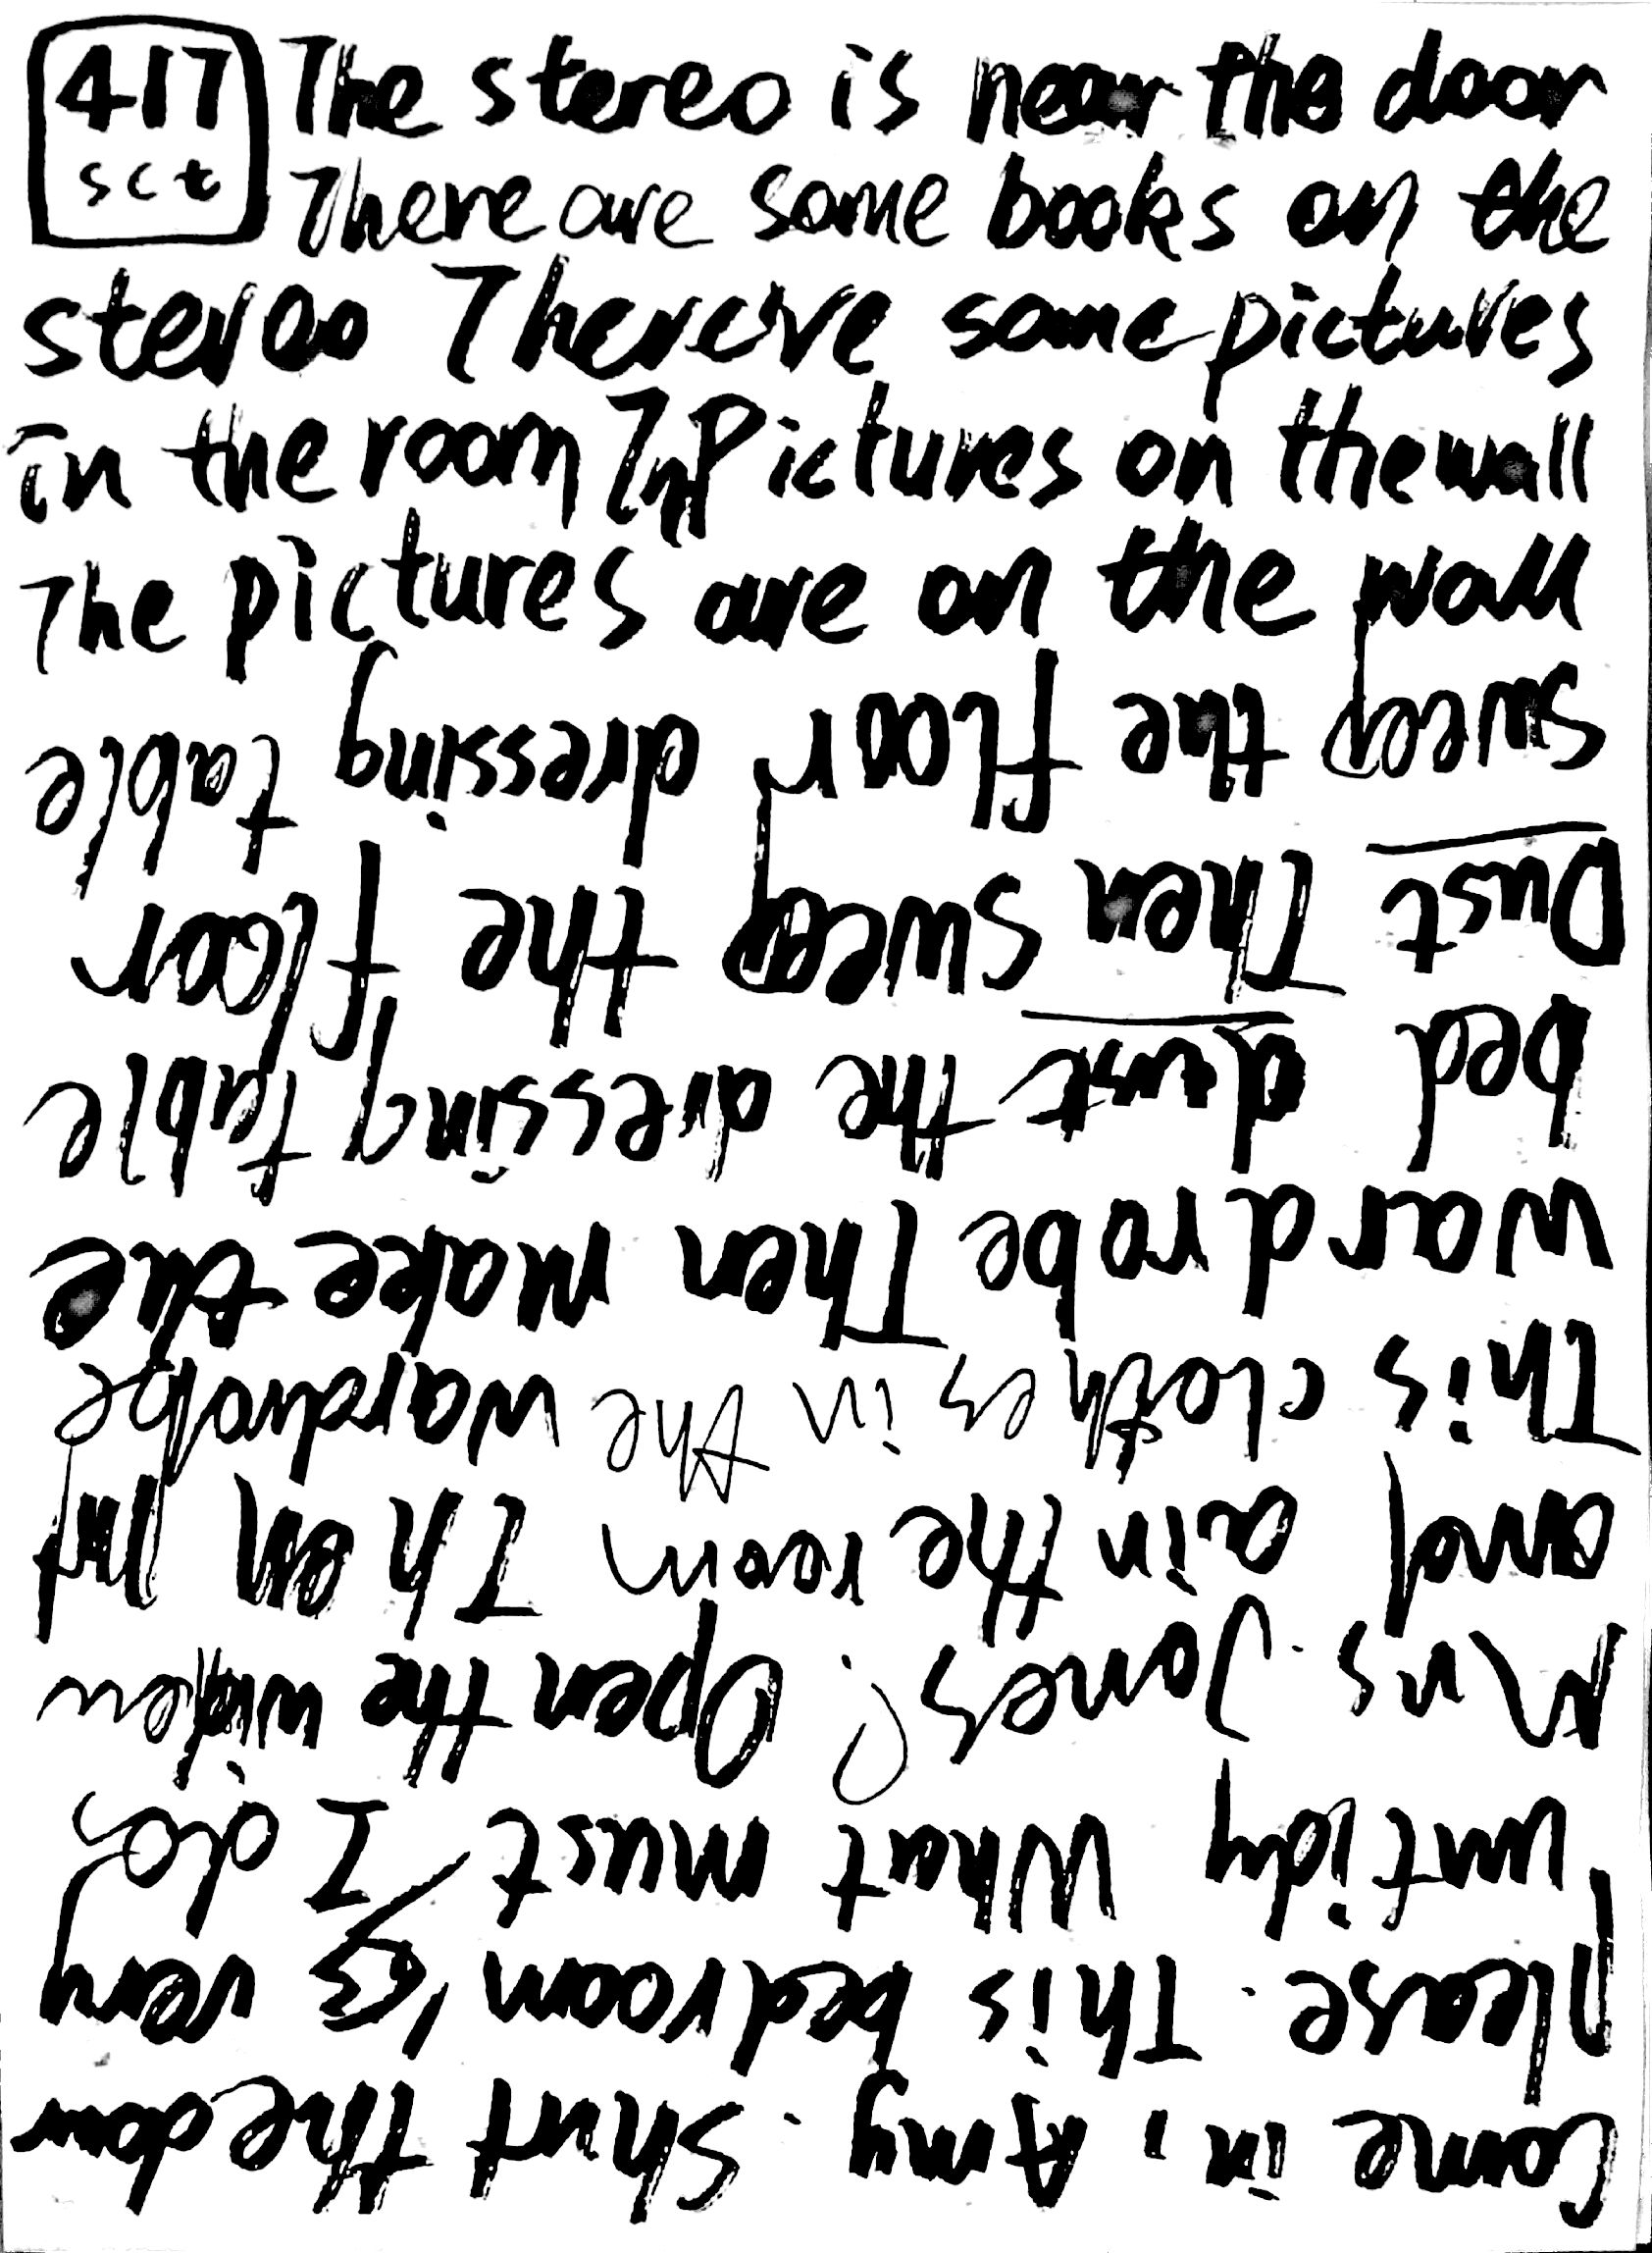 417
sct
The stereo is near the door
There are some books on the
stereo There are some pictures
in the room Pictures on the wall
The pictures are on the wall
Come in, Amy. Shut the door
Please. This bedroom is very
untidy What must I do?
Mrs. Jones: Open the window
and in the room Then put
This clothes in the wardrobe
wardrobe Then make the
bed dust the dressing table
Dust Then sweep the floor
sweep the floor dressing table